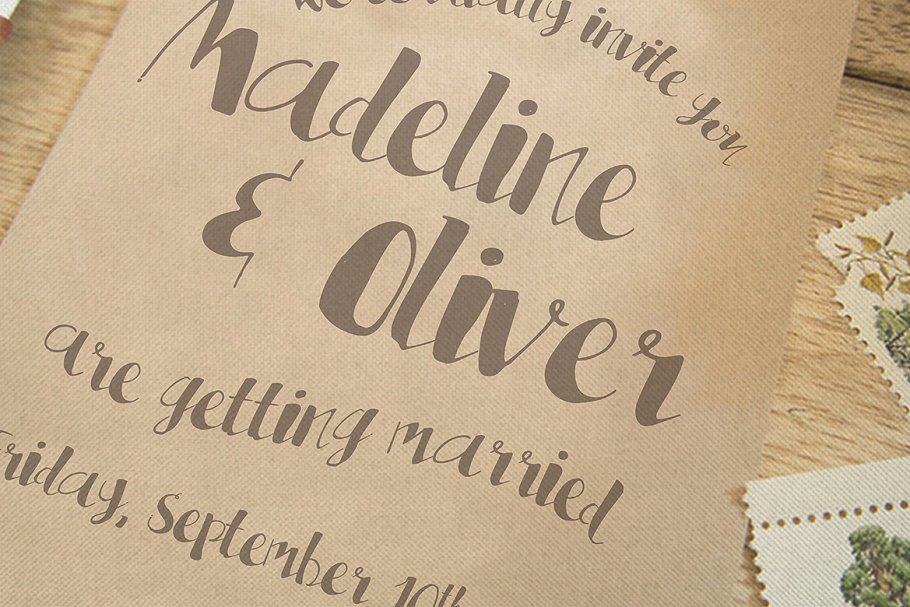 invite you
Madeline
& Oliver
are getting married
Friday, September 10th